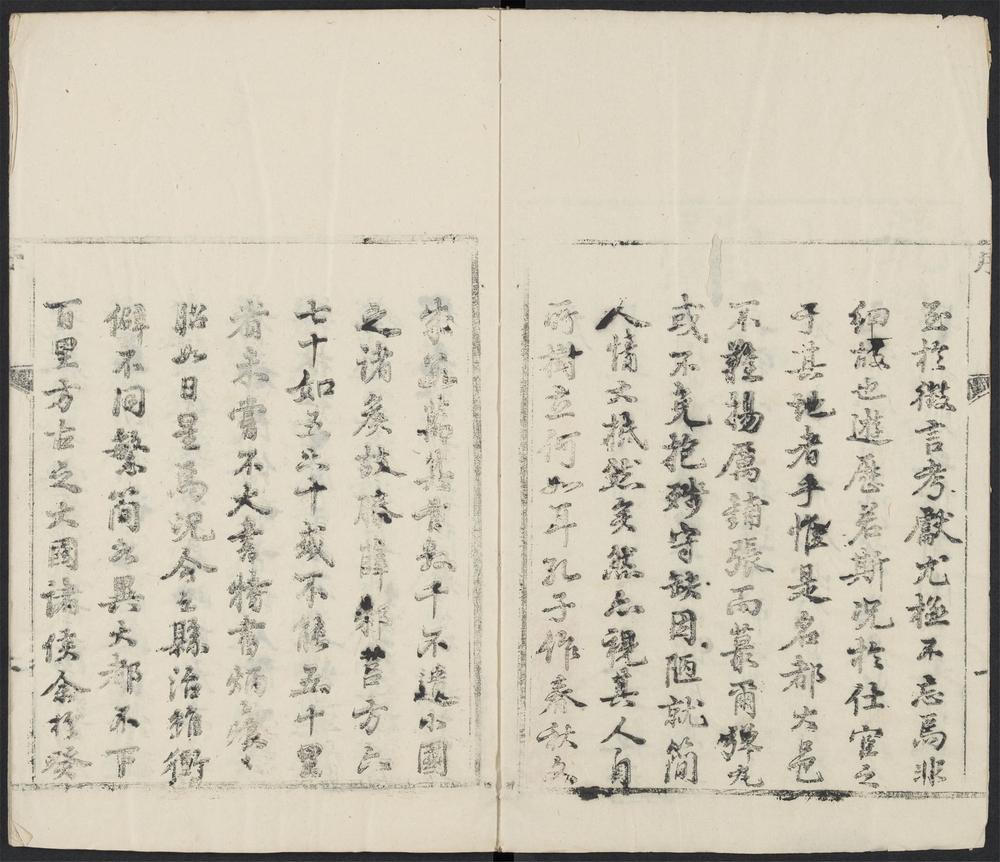 序
至於徵言考獻尤極不忘焉非
細故也遊歷若斯況於仕宦之
于其地者乎惟是名都大邑
不難揚厲鋪張而蕞爾彈丸
或不免抱殘守缺因陋就簡
人情大抵然矣然亦視其人自
所樹立何如耳孔子作春秋
其書 千不遺小國
之諸侯故滕薛邾莒方六
七十如五六十或不能五十里
者未嘗不大書特書炳
昭如日星焉況今之縣治雖衝
僻不同繁簡亦異大都不下
百里方古之大國諸侯余於癸